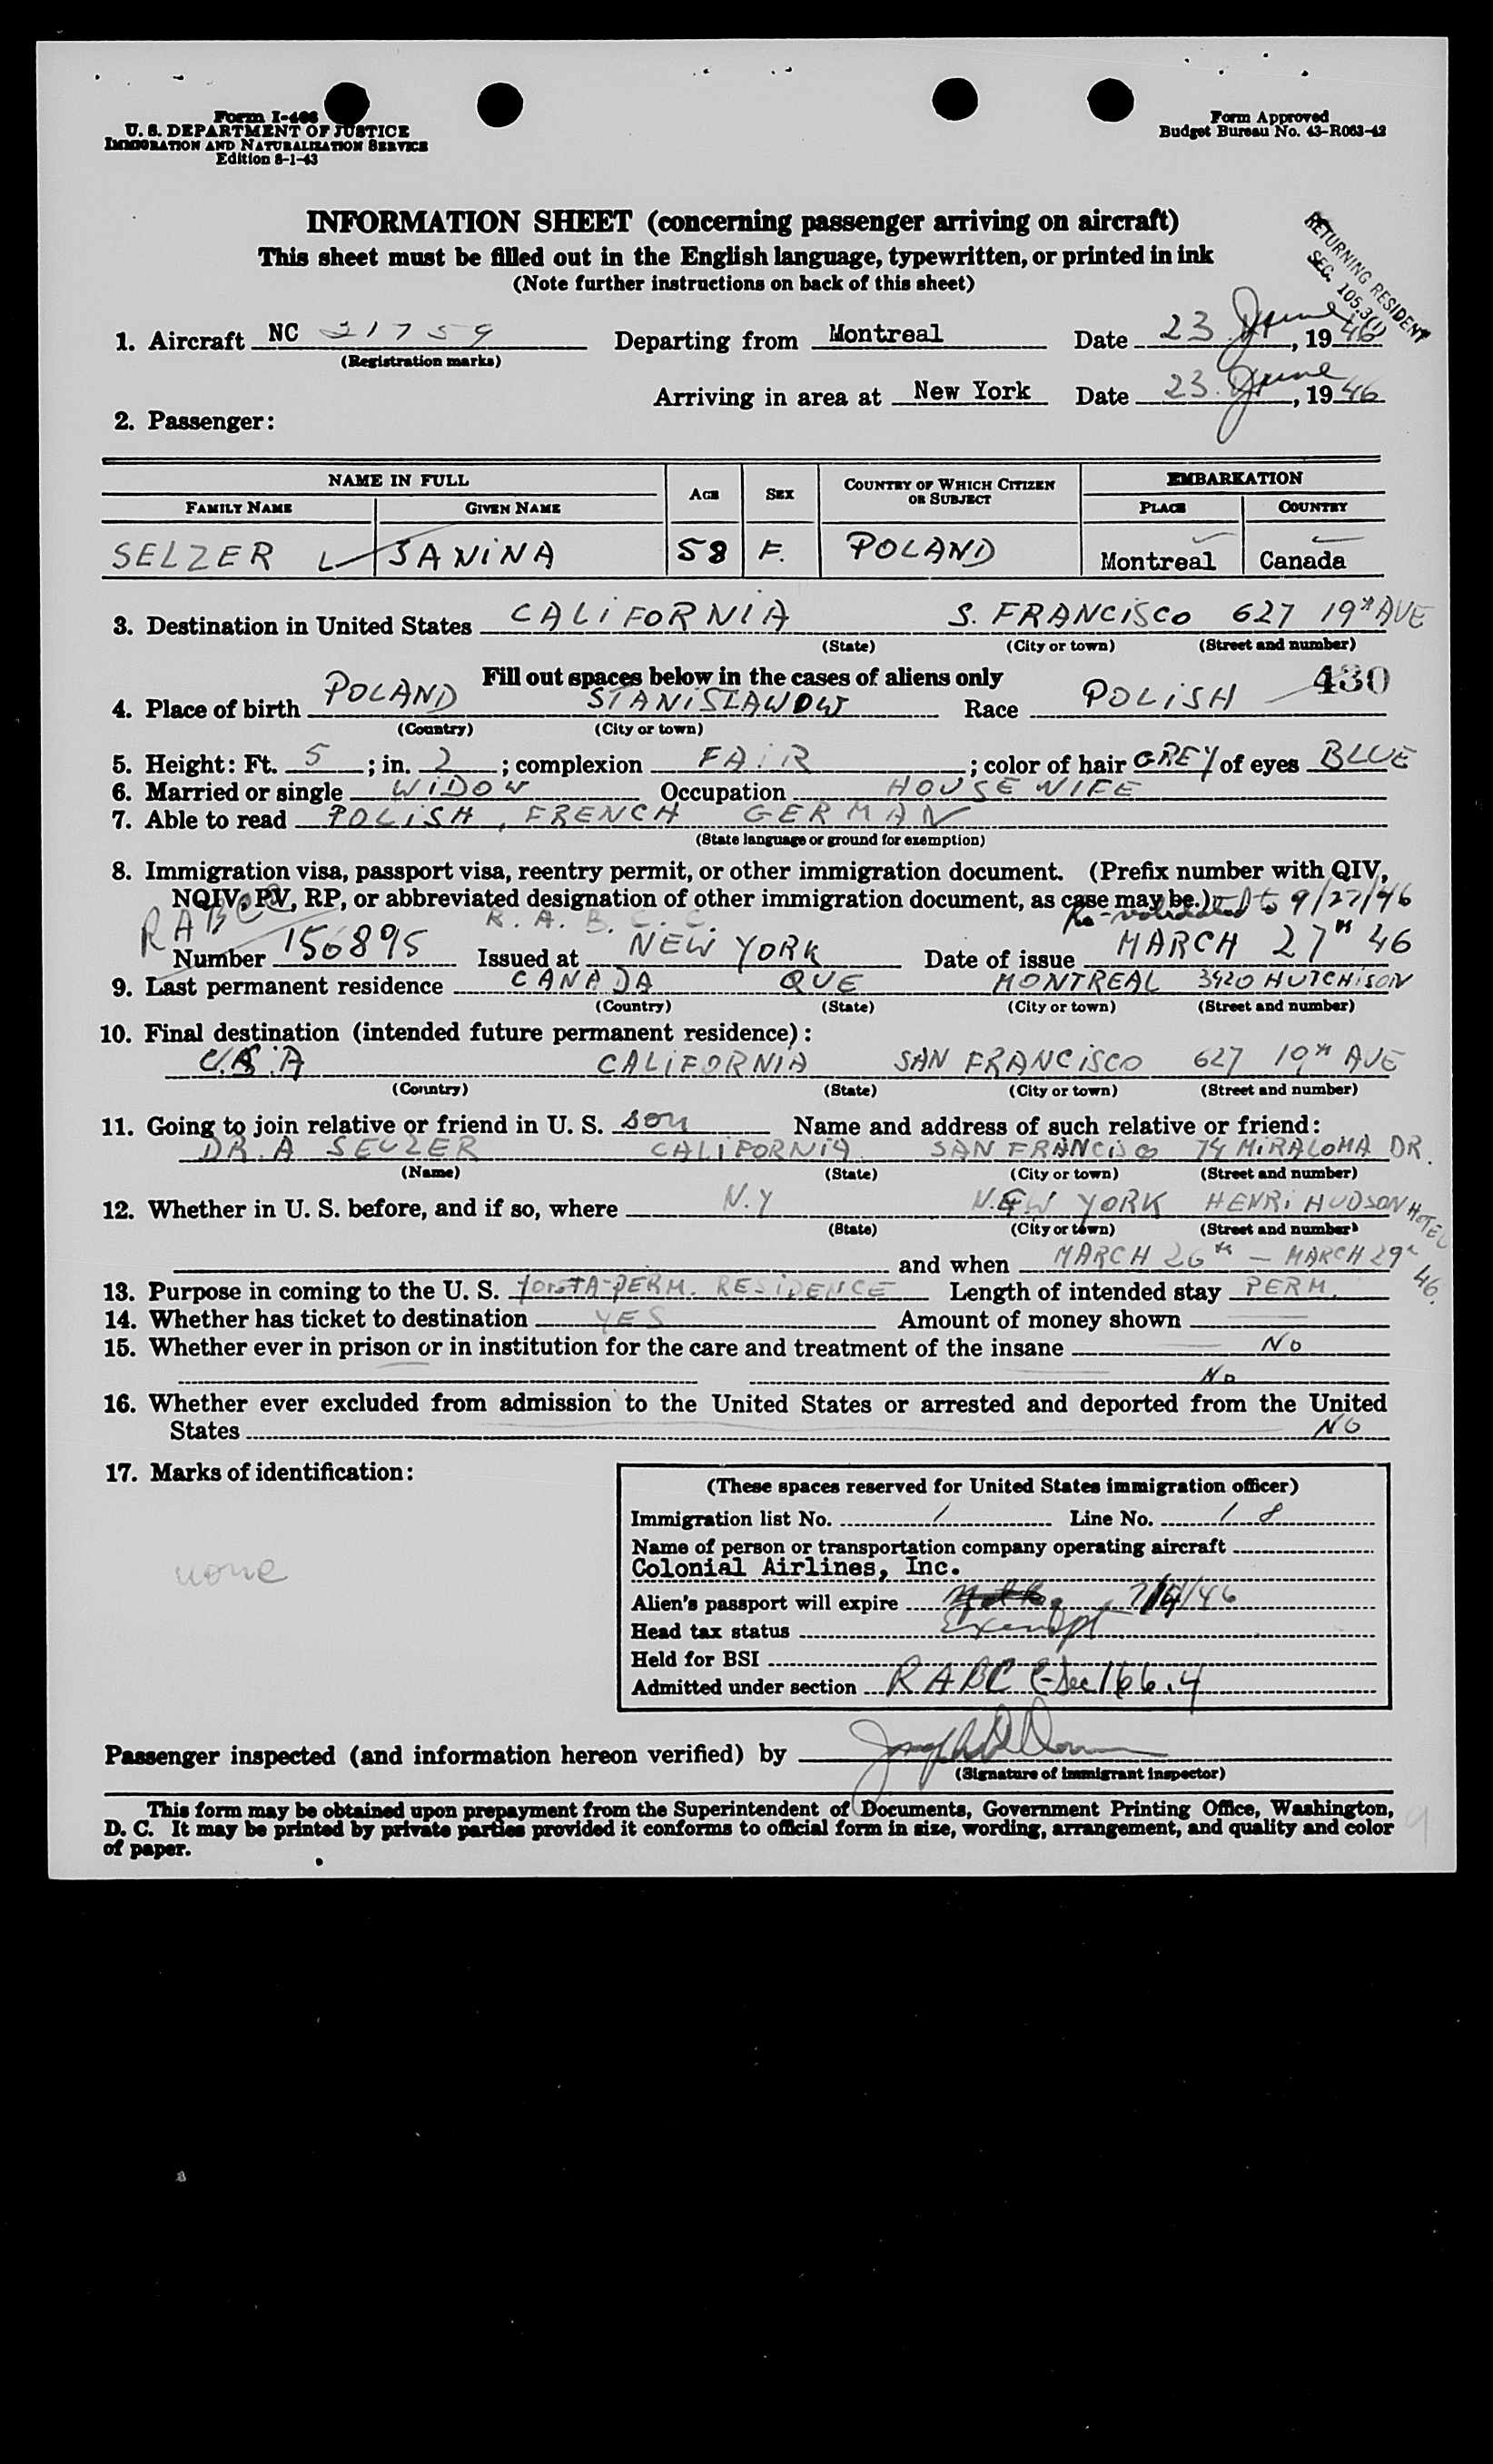 Form I-466
U. S. DEPARTMENT OF JUSTICE
IMMIGRATION AND NATURALIZATION SERVICE
Edition 8-1-43
Form Approved
Budget Bureau No. 43-R063-42
INFORMATION SHEET (concerning passenger arriving on aircraft)
This sheet must be filled out in the English language, typewritten, or printed in ink
(Note further instructions on back of this sheet)
RETURNING RESIDENT
SEC. 105.3(1)
1. Aircraft NC 21759 Departing from Montreal Date 23 June, 1946
(Registration marks)
Arriving in area at New York Date 23 June, 1946
2. Passenger:
NAME IN FULL AGE SEX COUNTRY OF WHICH CITIZEN OR SUBJECT EMBARKATION
FAMILY NAME GIVEN NAME PLACE COUNTRY
SELZER JANINA 58 F. POLAND Montreal Canada
3. Destination in United States CALIFORNIA S. FRANCISCO 627 19th AVE
(State) (City or town) (Street and number)
Fill out spaces below in the cases of aliens only 430
4. Place of birth POLAND STANISLAWOW Race POLISH
(Country) (City or town)
5. Height: Ft. 5; in. 2; complexion FAIR; color of hair GREY of eyes BLUE
6. Married or single WIDOW Occupation HOUSE WIFE
7. Able to read POLISH, FRENCH GERMAN
(State language or ground for exemption)
8. Immigration visa, passport visa, reentry permit, or other immigration document. (Prefix number with QIV,
NQIV, PV, RP, or abbreviated designation of other immigration document, as case may be.) Re-validated to 9/27/46
RABCC R. A. B. C. C.
Number 150895 Issued at NEW YORK Date of issue MARCH 27th 46
9. Last permanent residence CANADA QUE MONTREAL 3920 HUTCHISON
(Country) (State) (City or town) (Street and number)
10. Final destination (intended future permanent residence):
U.S.A CALIFORNIA SAN FRANCISCO 627 19th AVE
(Country) (State) (City or town) (Street and number)
11. Going to join relative or friend in U. S. son Name and address of such relative or friend:
DR. A SELZER CALIFORNIA SAN FRANCISCO 74 MIRALOMA DR.
(Name) (State) (City or town) (Street and number)
12. Whether in U. S. before, and if so, where N.Y NEW YORK HENRI HUDSON HOTEL
(State) (City or town) (Street and number)
and when MARCH 26th - MARCH 29th 46.
13. Purpose in coming to the U. S. PERM. RESIDENCE Length of intended stay PERM.
14. Whether has ticket to destination YES Amount of money shown
15. Whether ever in prison or in institution for the care and treatment of the insane No
No
16. Whether ever excluded from admission to the United States or arrested and deported from the United
States NO
17. Marks of identification:
none
(These spaces reserved for United States immigration officer)
Immigration list No. 1 Line No. 18
Name of person or transportation company operating aircraft
Colonial Airlines, Inc.
Alien's passport will expire 7/4/46
Head tax status Exempt
Held for BSI
Admitted under section RABCC-Sec 166.4
Passenger inspected (and information hereon verified) by
(Signature of immigrant inspector)
This form may be obtained upon prepayment from the Superintendent of Documents, Government Printing Office, Washington,
D. C. It may be printed by private parties provided it conforms to official form in size, wording, arrangement, and quality and color
of paper.